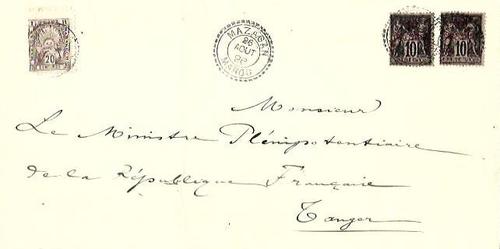 20
MAZAGAN
26
AOUT
MAROC
10
10
Monsieur
Le Ministre Plénipotentiaire
de la République Française
Tanger